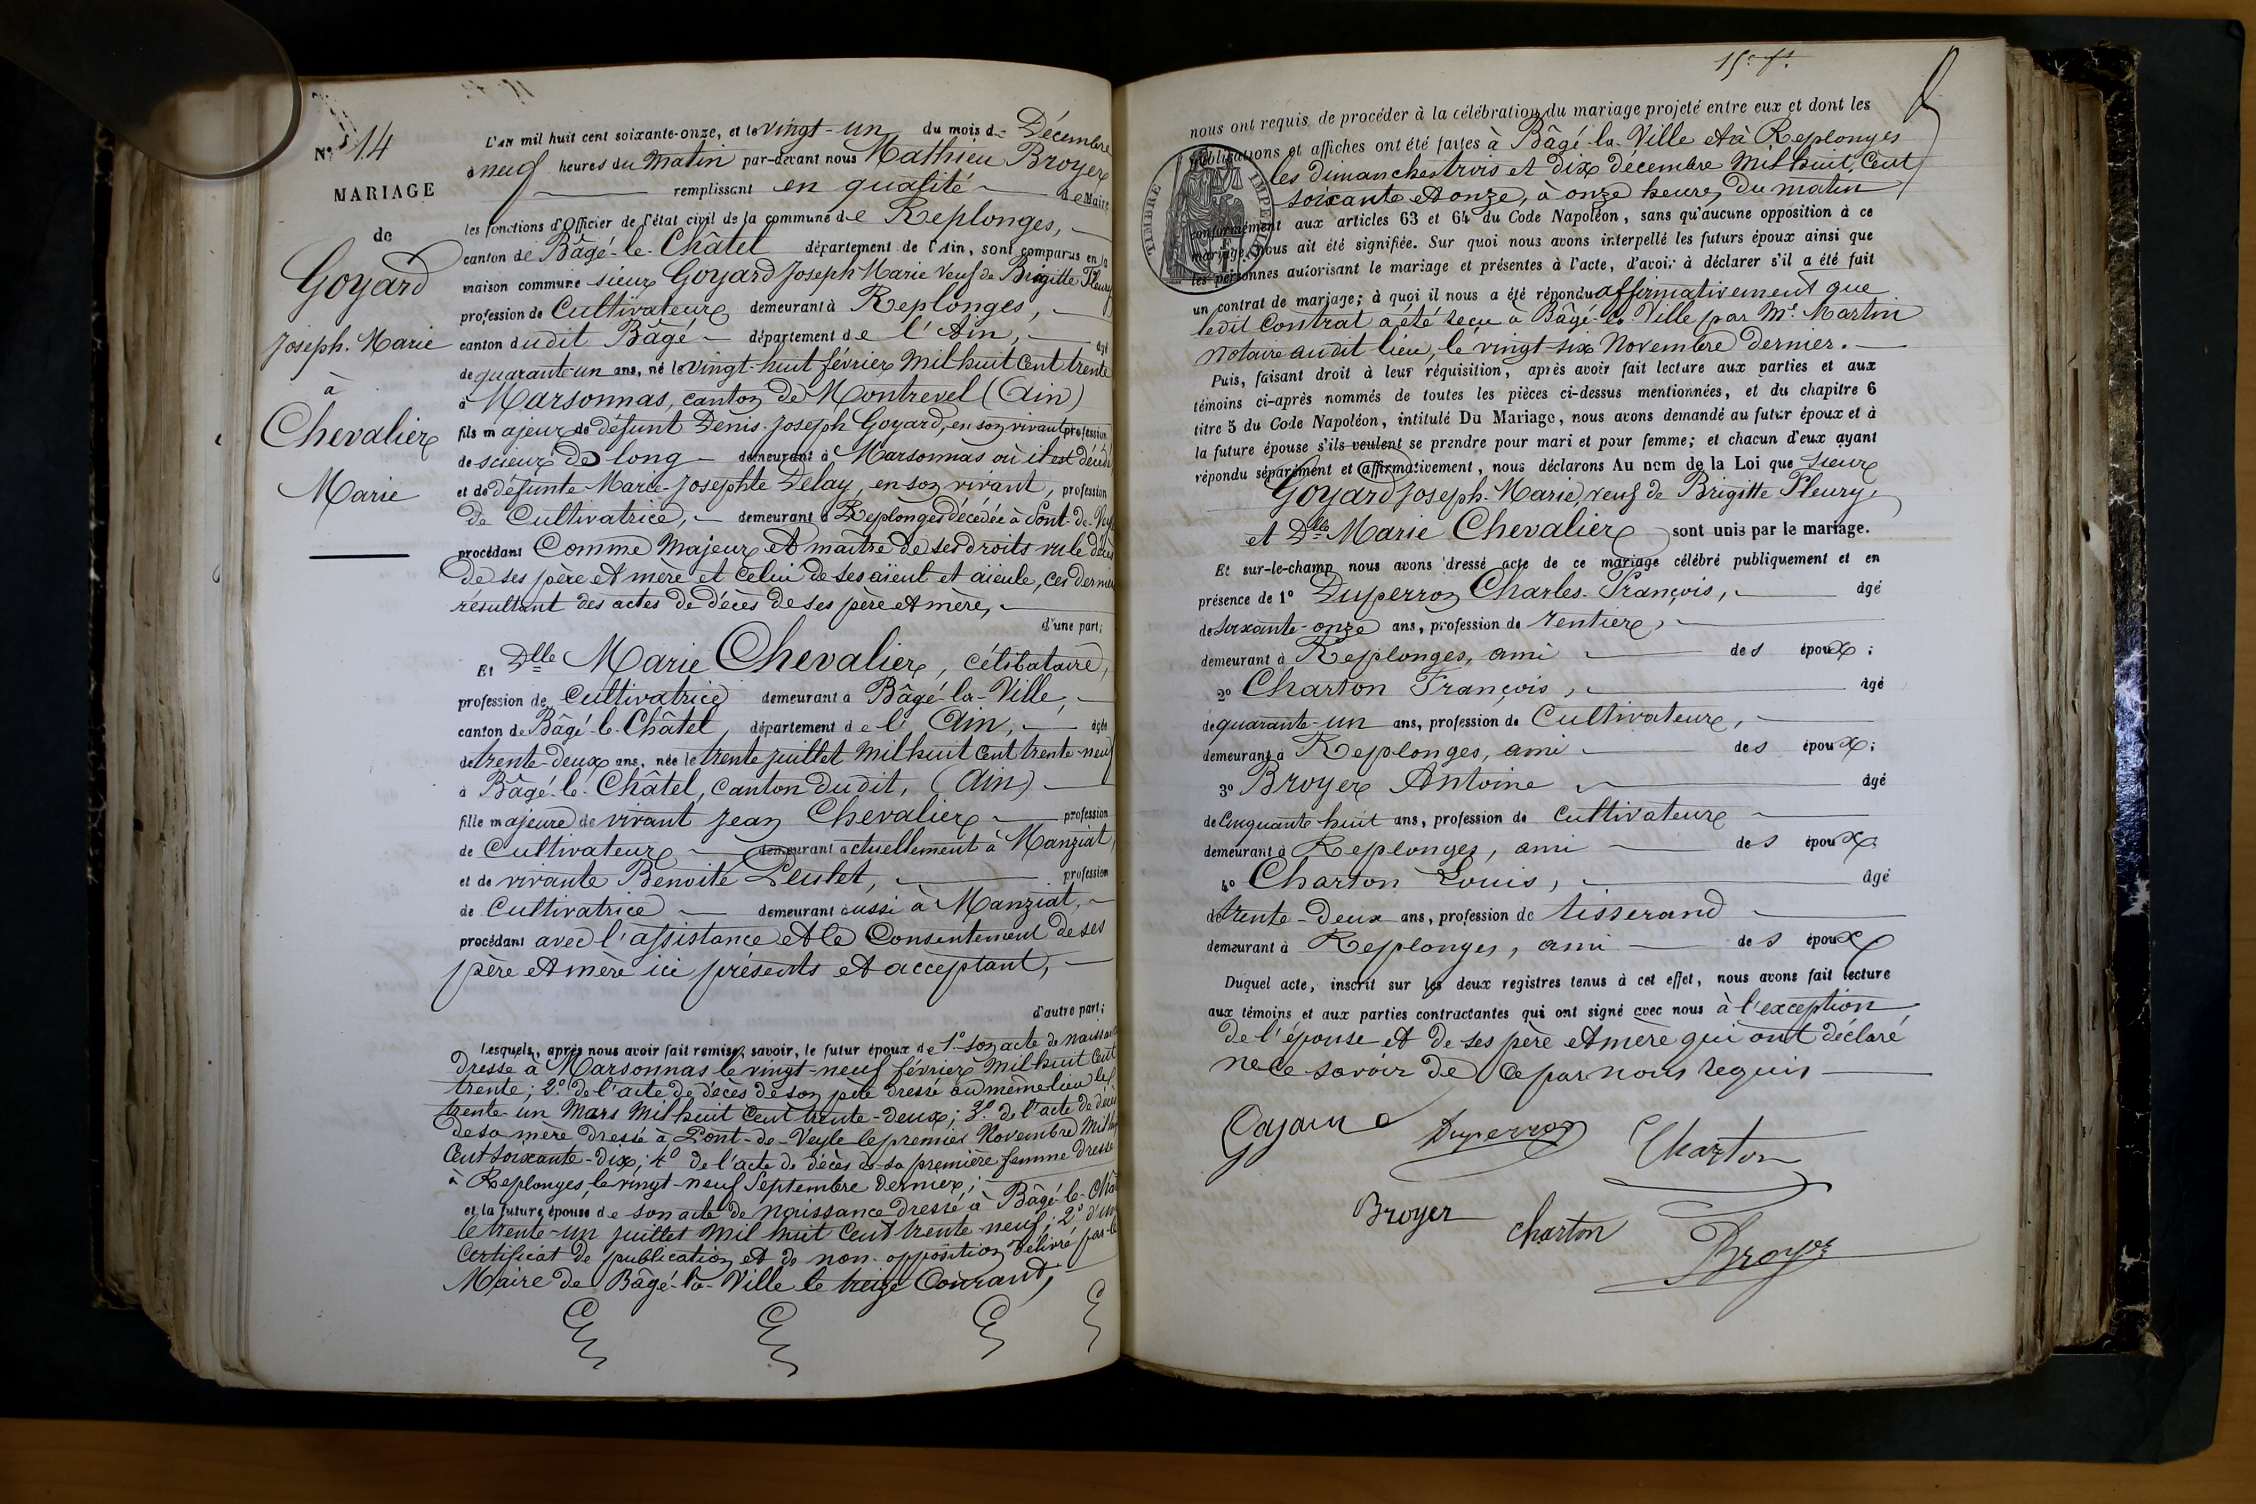 No 14
MARIAGE
de
Goyard
Joseph-Marie
à
Chevalier
Marie
L'an mil huit cent soixante-onze, et le vingt-un du mois de Décembre
à neuf heures du matin par-devant nous Mathieu Broyer
remplissant en qualité de Maire
les fonctions d'Officier de l'état civil de la commune de Replonges,
canton de Bâgé-le-Châtel département de l'Ain, sont comparus en la
maison commune sieur Goyard Joseph Marie veuf de Brigitte Fleury
profession de Cultivateur demeurant à Replonges,
canton dudit Bâgé département de l'Ain, âgé
de quarante-un ans, né le vingt-huit février mil huit cent trente
à Marsonnas, canton de Montrevel (Ain)
fils majeur de défunt Denis-Joseph Goyard, en son vivant profession
de scieur de long demeurant à Marsonnas où il est décédé
et de défunte Marie-Josephte Delay, en son vivant, profession
de Cultivatrice, demeurant à Replonges décédée à Pont-de-Veyle
procédant Comme majeur et maître de ses droits vu le décès
de ses père et mère et celui de ses aïeul et aïeule, ces derniers
résultant des actes de décès de ses père et mère,
d'une part;
Et Dlle Marie Chevalier, célibataire,
profession de Cultivatrice demeurant à Bâgé-la-Ville,
canton de Bâgé-le-Châtel, département de l'Ain, âgée
de trente-deux ans, née le trente juillet mil huit cent trente-neuf
à Bâgé-le-Châtel, canton dudit, (Ain)
fille majeure de vivant Jean Chevalier profession
de Cultivateur demeurant actuellement à Manziat,
et de vivante Benoite Peulet, profession
de Cultivatrice demeurant aussi à Manziat,
procédant avec l'assistance et le Consentement de ses
père et mère ici présents et acceptant,
d'autre part;
Lesquels, après nous avoir fait remise, savoir, le futur époux de 1° son acte de naissance
dressé à Marsonnas le vingt-neuf février mil huit cent
trente; 2° de l'acte de décès de son père dressé au même lieu le
trente un Mars mil huit cent trente-deux; 3° de l'acte de décès
de sa mère dressé à Pont-de-Veyle le premier Novembre mil huit
Cent soixante-dix; 4° de l'acte de décès de sa première femme dressé
à Replonges, le vingt-neuf Septembre dernier;
et la future épouse de son acte de naissance dressé à Bâgé-le-Châtel
le trente-un juillet mil huit cent trente neuf; 2° d'un
Certificat de publication et de non-opposition délivré par le
Maire de Bâgé-la-Ville le treize Courant,
15e ft
nous ont requis de procéder à la célébration du mariage projeté entre eux et dont les
publications et affiches ont été faites à Bâgé-la-Ville et à Replonges
les dimanches trois et dix décembre mil huit cent
soixante et onze, à onze heures du matin
TIMBRE IMPERIAL
conformément aux articles 63 et 64 du Code Napoléon, sans qu'aucune opposition à ce
mariage nous ait été signifiée. Sur quoi nous avons interpellé les futurs époux ainsi que
les personnes autorisant le mariage et présentes à l'acte, d'avoir à déclarer s'il a été fait
un contrat de mariage; à quoi il nous a été répondu affirmativement que
ledit Contrat a été reçu à Bâgé-la-Ville par Me Martin
Notaire audit lieu, le vingt-six Novembre dernier.
Puis, faisant droit à leur réquisition, après avoir fait lecture aux parties et aux
témoins ci-après nommés de toutes les pièces ci-dessus mentionnées, et du chapitre 6
titre 5 du Code Napoléon, intitulé Du Mariage, nous avons demandé au futur époux et à
la future épouse s'ils veulent se prendre pour mari et pour femme; et chacun d'eux ayant
répondu séparément et affirmativement, nous déclarons Au nom de la Loi que sieur
Goyard Joseph-Marie, veuf de Brigitte Fleury,
et Dlle Marie Chevalier sont unis par le mariage.
Et sur-le-champ nous avons dressé acte de ce mariage célébré publiquement et en
présence de 1° Duperron Charles-François, âgé
de soixante-onze ans, profession de rentier,
demeurant à Replonges, ami des époux;
2° Charton François, âgé
de quarante-un ans, profession de Cultivateur,
demeurant à Replonges, ami des époux;
3° Broyer Antoine âgé
de Cinquante huit ans, profession de Cultivateur
demeurant à Replonges, ami des époux
4° Charton Louis, âgé
de trente-deux ans, profession de tisserand
demeurant à Replonges, ami des époux
Duquel acte, inscrit sur les deux registres tenus à cet effet, nous avons fait lecture
aux témoins et aux parties contractantes qui ont signé avec nous à l'exception
de l'épouse et de ses père et mère qui ont déclaré
ne le savoir de ce par nous requis
Duperron
Charton
Broyer
Charton
Broyer